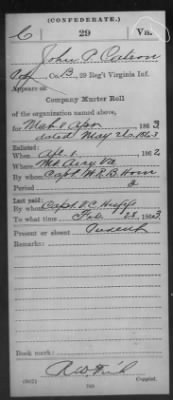 (CONFEDERATE.)
C 29 Va.
John P.
Co. B, 29 Reg't Virginia Inf.
Appears on
Company Muster Roll
of the organization named above,
for Mch & Apr, 1863
dated May 20, 1863
Enlisted:
When Apl. 1, 1862
Where Mt. Airy Va
By whom Capt. W.R.B. Horn
Period 3
Last paid:
By whom Capt. V.C.
To what time Feb. 28, 1863.
Present or absent Present
Remarks:
Book mark:
R.W.
Copyist.